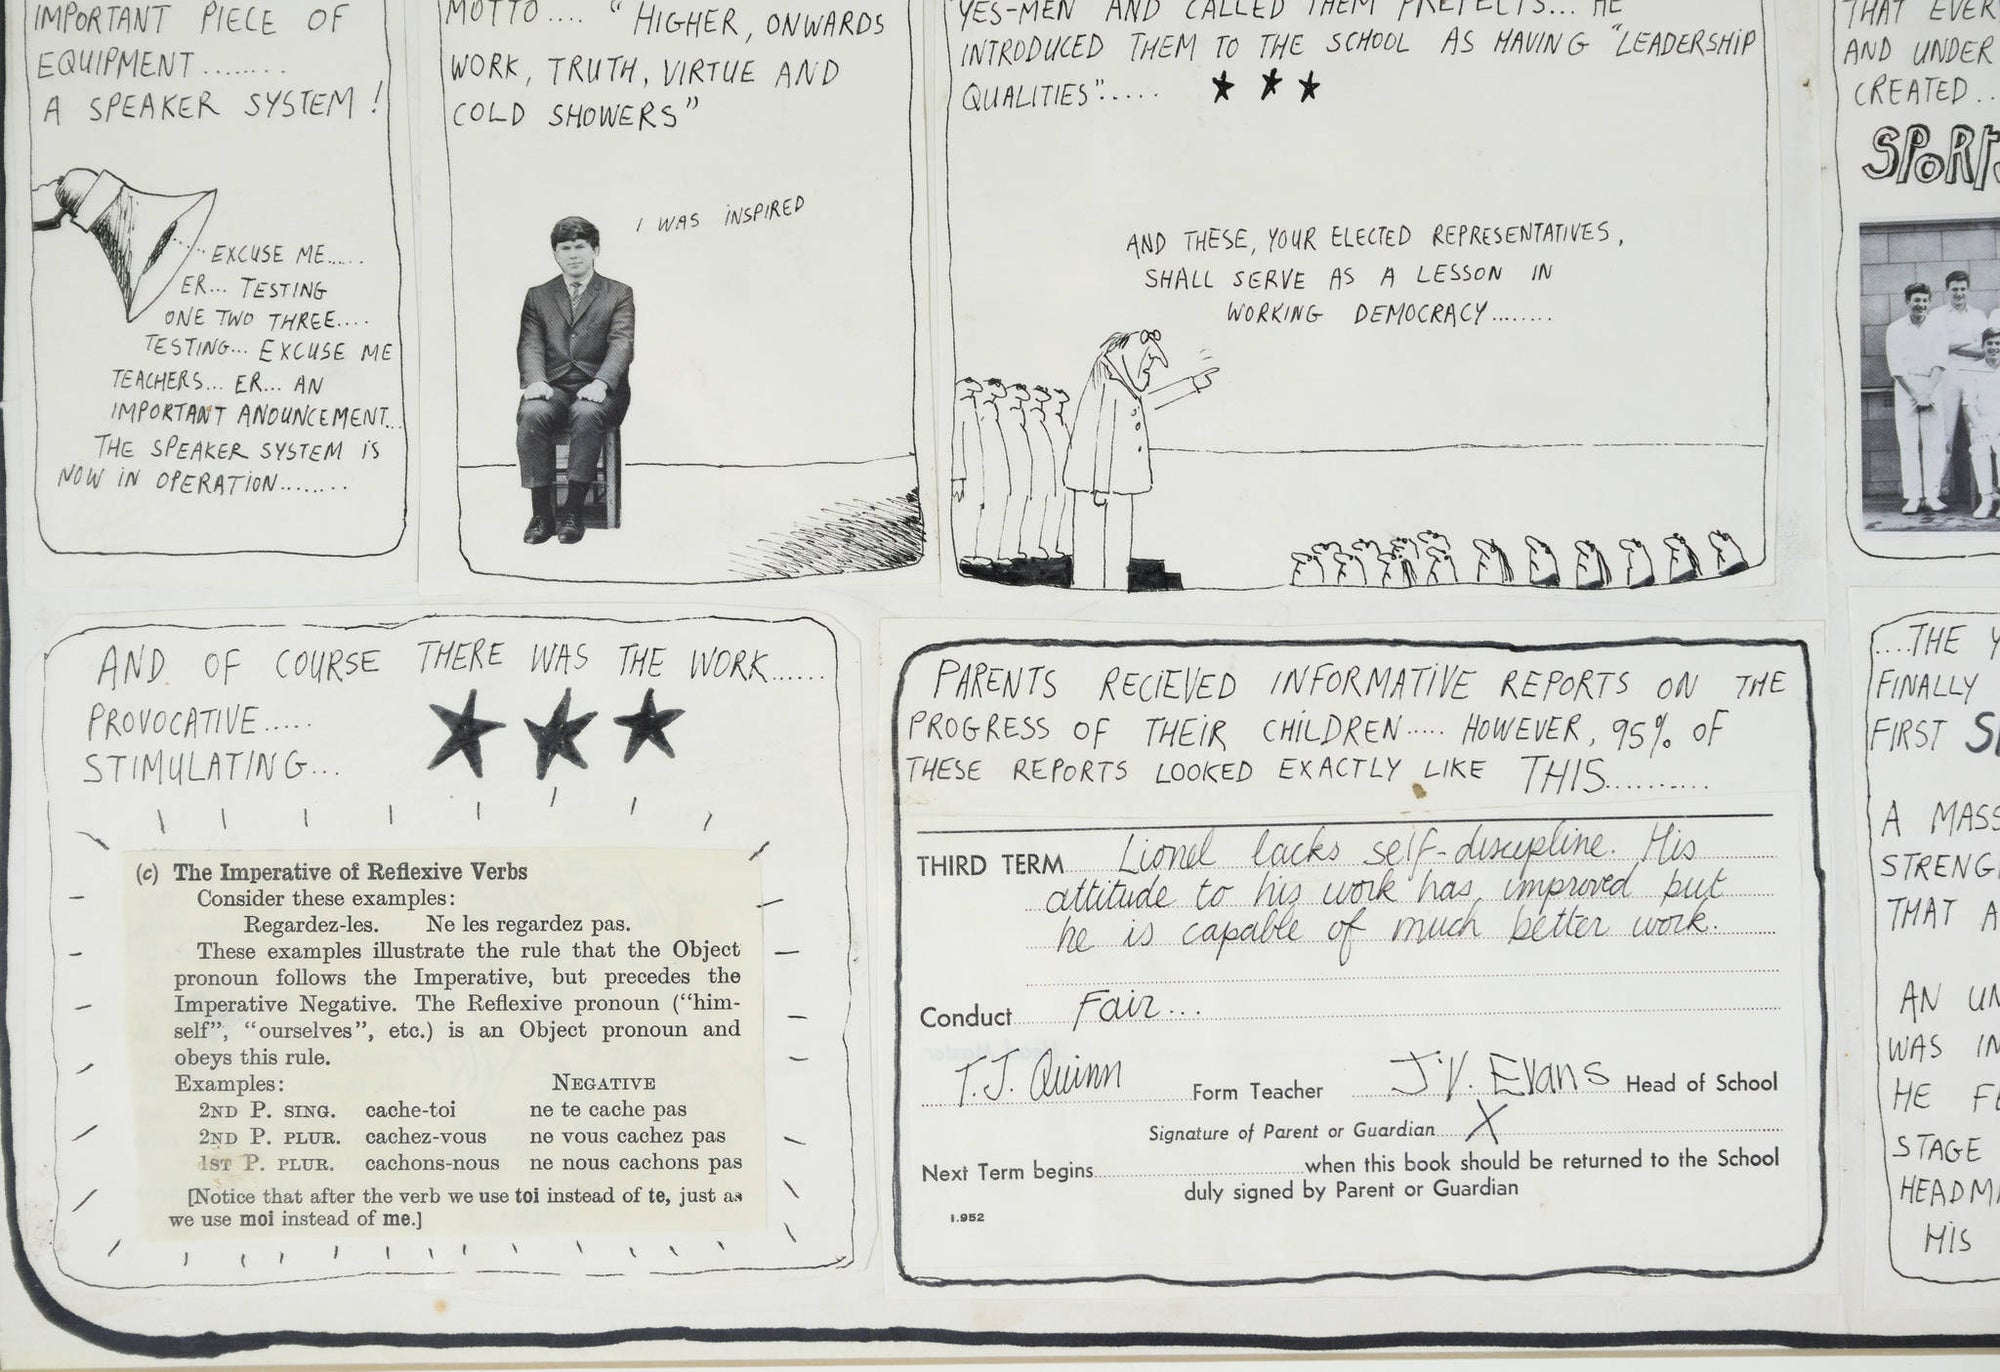 IMPORTANT PIECE OF
EQUIPMENT........
A SPEAKER SYSTEM!
EXCUSE ME.....
ER... TESTING
ONE TWO THREE....
TESTING... EXCUSE ME
TEACHERS... ER... AN
IMPORTANT ANOUNCEMENT...
THE SPEAKER SYSTEM IS
NOW IN OPERATION........
MOTTO.... "HIGHER, ONWARDS
WORK, TRUTH, VIRTUE AND
COLD SHOWERS"
I WAS INSPIRED
YES-MEN AND CALLED THEM PREFECTS... HE
INTRODUCED THEM TO THE SCHOOL AS HAVING "LEADERSHIP
QUALITIES".....
AND THESE, YOUR ELECTED REPRESENTATIVES,
SHALL SERVE AS A LESSON IN
WORKING DEMOCRACY........
THAT EVER
AND UNDER
CREATED..
SPORTS
AND OF COURSE THERE WAS THE WORK......
PROVOCATIVE.....
STIMULATING...
(c) The Imperative of Reflexive Verbs
Consider these examples:
Regardez-les. Ne les regardez pas.
These examples illustrate the rule that the Object
pronoun follows the Imperative, but precedes the
Imperative Negative. The Reflexive pronoun ("him-
self", "ourselves", etc.) is an Object pronoun and
obeys this rule.
Examples: NEGATIVE
2ND P. SING. cache-toi ne te cache pas
2ND P. PLUR. cachez-vous ne vous cachez pas
1ST P. PLUR. cachons-nous ne nous cachons pas
[Notice that after the verb we use toi instead of te, just as
we use moi instead of me.]
PARENTS RECIEVED INFORMATIVE REPORTS ON THE
PROGRESS OF THEIR CHILDREN..... HOWEVER, 95% OF
THESE REPORTS LOOKED EXACTLY LIKE THIS..........
THIRD TERM Lionel lacks self-discipline. His
attitude to his work has improved but
he is capable of much better work.
Conduct Fair...
T.J. Quinn Form Teacher J.V. Evans Head of School
Signature of Parent or Guardian X
Next Term begins when this book should be returned to the School
duly signed by Parent or Guardian
1.952
....THE Y
FINALLY
FIRST
A MASS
STRENG
THAT A
AN UN
WAS IN
HE
STAGE
HEADMA
HIS